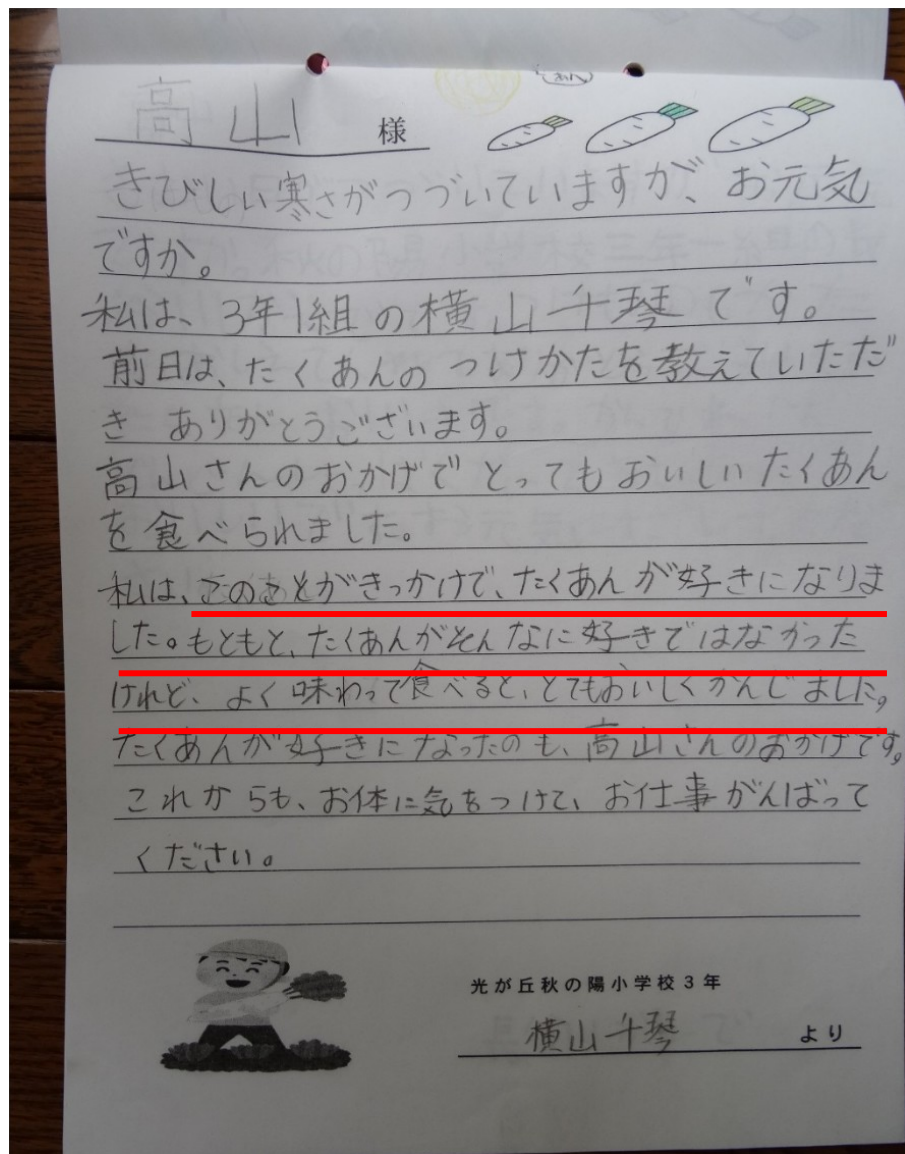 高山 様
きびしい寒さがつづいていますが、お元気
ですか。
私は、3年1組の横山千琴です。
前日は、たくあんのつけかたを教えていただ
き ありがとうございます。
高山さんのおかげでとってもおいしいたくあん
を食べられました。
私は、このことがきっかけで、たくあんが好きになりま
した。もともと、たくあんがそんなに好きではなかった
けれど、よく味わって食べると、とてもおいしくかんじました。
たくあんが好きになったのも、高山さんのおかげです。
これからも、お体に気をつけて、お仕事がんばって
ください。
光が丘秋の陽小学校3年
横山千琴 より